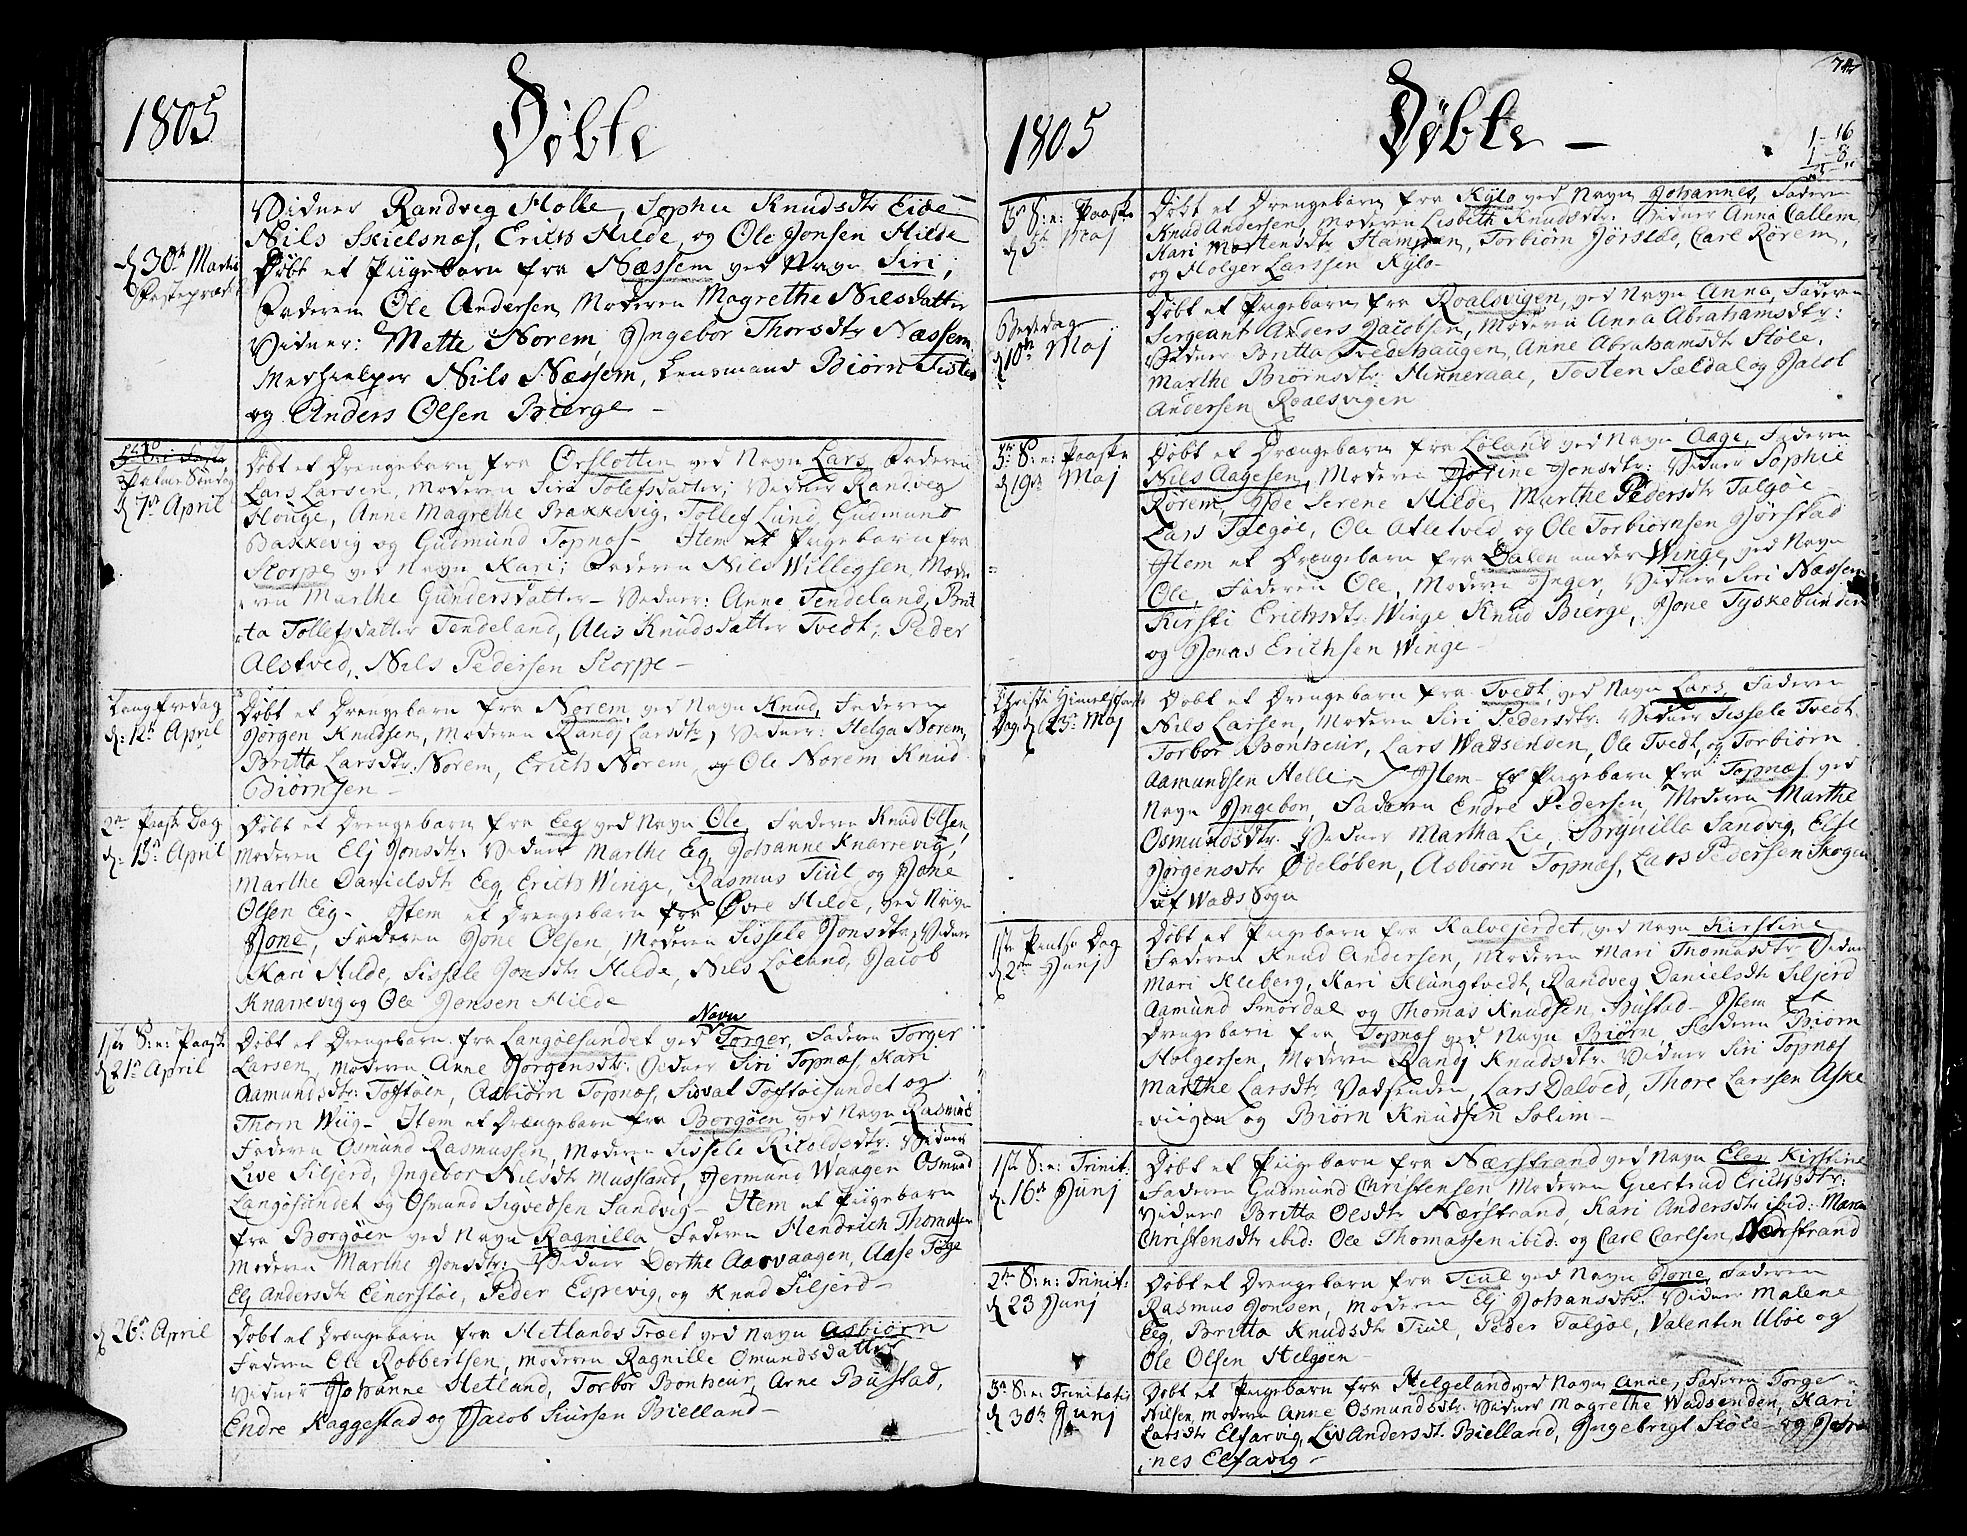 1805
Døbte
Vidner Randveg Holle, Sophie Knudsdtr Eide
Nils Skielsnæs, Erich Hilde, og Ole Jonsen Hilde
d 30th Martii
Døbt et Piigebarn fra Næssem ved Navn Siri;
Faderen Ole Andersen, Moderen Magrethe Nilsdatter
Vidner: Mette Norem, Ingebor Thorsdtr Næssem
Medhielper Nils Næssem, Lensmand Biørn Fister
og Anders Olsen Bierge -
Palme Søndag
d 7de April
Døbt et Drengebarn fra Ørslotten ved Navn Lars, Faderen
Lars Larsen, Moderen Siri Tolefsdatter; Vidner Randveg
Houge, Anne Magrethe Brakkevig, Tollef Lund, Gudmund
Bakkevig og Gudmund Topnæs - Item et Pigebarn fra
Storpe ved Navn Kari; Faderen Nils Willegsen, Mode
ren Marthe Gundersdatter - Vidner: Anne Tendeland, Brit
ta Tollefsdatter Tendeland, Alis Knudsdatter Tvedt; Peder
Alstved, Nils Pedersen Storpe -
Langfredag
d: 12th April
Døbt et Drengebarn fra Norem ved Navn Knud, Faderen
Jørgen Knudsen, Moderen Randj Larsdtr, Vidner: Helga Norem,
Britta Larsdtr: Norem, Erich Norem, og Ole Norem Knud
Biørnsen -
2den Paaske Dag
d: 15de April
Døbt et Drengebarn fra Eeg ved Navn Ole, Faderen Knud Olsen,
Moderen Elj Jonsdtr, Vidner Marthe Eg, Johanne Knarrevig,
Marthe Danielsdtr Eeg, Erich Winge, Rasmus Tiul og Jone
Olsen Eig - Item et Drengebarn fra Øvre Hilde, ved Navn
Jone, Faderen Jone Olsen, Moderen Sissele Jonsdtr, Vidner
Kari Hilde, Sissele Jonsdtr Hilde, Nils Løland, Jacob
Knarrevig og Ole Jonsen Hilde
1ste S: e: Paaske
d 21de April
Navn
Døbt et Drengebarn fra Langøesundet ved Torger, Faderen Torger
Larsen, Moderen Anne Jørgensdtr: Vidner Siri Topnæs, Kari
Aamundsdtr: Toftøen, Asbiørn Topnæs, Sivat Toftøesundet og
Thorn Wiig - Item et Drængebarn fra Borgøen ved Navn Rasmus
Faderen Osmund Rasmussen, Moderen Sissele Kitoldsdtr: Vidner
Live Siljerd, Ingebor Nilsdtr Musland, Jermund Waagen Osmund
Langøsundet og Osmund Sigvedsen Sandvig - Item et Piigebarn
fra Borgøen ved Navn Ragnilla Faderen Hendrich Thomasen
Moderen Marthe Jonsdtr: Vidner Dorthe Aarvaagen, Aase Føge
Elj Andersdtr Einerstøe, Peder Espevig, og Knud Siljerd -
d 26de April
Døbt et Drængebarn fra Hetlands Træet ved Navn Asbiørn
Faderen Ole Robbertsen, Moderen Ragnille Omundsdatter
Vidner Johanne Hetland, Torbor Bonheur, Arne Bustad,
Endre Raggestad og Jacob Siursen Bielland -
1805
Døbte -
74
1 - 16
1 - 8
S: e: Paaske
d 5te Maj
Døbt et Drengebarn fra Kylo ved Navn Johannes, Faderen
Knud Andersen, Moderen Lisbeth Knudsdtr: Vidner Anna Callem,
Kari Mortensdtr Hampan, Torbiørn Jørstad, Carl Rørem,
og Holger Larssen Kylo -
Bededag
d 10th Maj
Døbt et Pigebarn fra Roalsvigen, ved Navn Anna, Faderen
Sergeant Anders Jacobsen, Moderen Anna Abrahamsdtr:
Vidner Britta Tvedthaugen, Anne Abrahamsdt Støle,
Marthe Biørnsdtr: Hinneraae, Tosten Sældal og Jacob
Andersen Roalsvigen
5te S: e: Paaske
d 19de Maj
Døbt et Drængebarn fra Løland ved Navn Aage, Faderen
Nils Aagesen, Moderen Jorine Jonsdtr: Vidner Sophie
Rørem, Ide Serene Hilde, Marthe Pedersdtr Talgøe
Lars Talgøe, Ole Atletved og Ole Torbiørnsen Jørstad
Item et Drængebarn fra Dalen under Winge, ved Navn
Ole, Faderen Ole, Moderen Inger, Vidner Siri Næssem
Kirsti Erichsdtr: Winge Knud Bierge, Jone Tyskebunden
og Jonas Erichsen Winge -
Christi Himmelfarts
Dag d 23de Maj
Døbt et Drengebarn fra Tvedt, ved Navn Lars, Faderen
Nils Larsen, Moderen Siri Pedersdtr: Vidner Sissele Tvedt
Torbor Bonheur, Lars Wadsenden, Ole Tvedt, og Torbiørn
Aamundsen Helle, - Item et Pigebarn fra Topnæs ved
Navn Ingebor, Faderen Endre Pedersen, Moderen Marthe
Osmundsdtr: Vidner Martha Lie, Brynilla Sandvig, Else
Jørgensdtr Ødeløben, Asbiørn Topnæs, Lars Pedersen Skogen
af Wads Sogn
1ste Pintse Dag
d 2den Junj
Døbt et Pigebarn fra Kalvejerdet, ved Navn Kirstine
Faderen Knud Andersen, Moderen Mari Thomasdtr: Vidner
Mari Kleberg, Kari Klungtvedt, Randveg Danielsdtr Siljerd
Aamund Smørdal og Thomas Knudsen, Bustad - Item et
Drengebarn fra Topnæs ved Navn Biørn, Faderen Biørn
Holgersen, Moderen Randj Knudsdtr: Vidner Siri Topnæs
Marthe Larsdtr Vadsenden, Lars Dalved, Thore Larssen Aske
viigen og Biørn Knudsen Solem -
1ste S: e: Trinit:
d 16de Junj
Døbt et Piigebarn fra Nærstrand ved Navn Elen Kirstine
Faderen Gudmund Christensen, Moderen Giertrud Erichsdtr:
Vidner Britta Olsdtr Nærstrand, Kari Andersdtr ibid: Maren
Christensdtr ibid: Ole Thomassen ibid: og Carl Carlsen, Nærstrand
2den S: e: Trinit:
d 23 Junj
Døbt et Drengebarn fra Tiul ved Navn Jone, Faderen
Rasmus Jonsen, Moderen Elj Johansdtr: Vidner Malene
Eeg, Britta Knudsdtr Tiul, Peder Talgøe, Valentin Ubøe og
Ole Olsen Helgøen -
3de S: e: Trinitatis
d 30th Junj
Døbt et Pigebarn fra Helgeland ved Navn Anne, Faderen Torge
Nilsen, Moderen Anne Osmundsdtr: Vidner Magrethe Wadsenden, Kari
Larsdtr Elfarvig, Liv Andersdt. Bielland, Ingebrigt Støle og Joha
nes Elfavig -